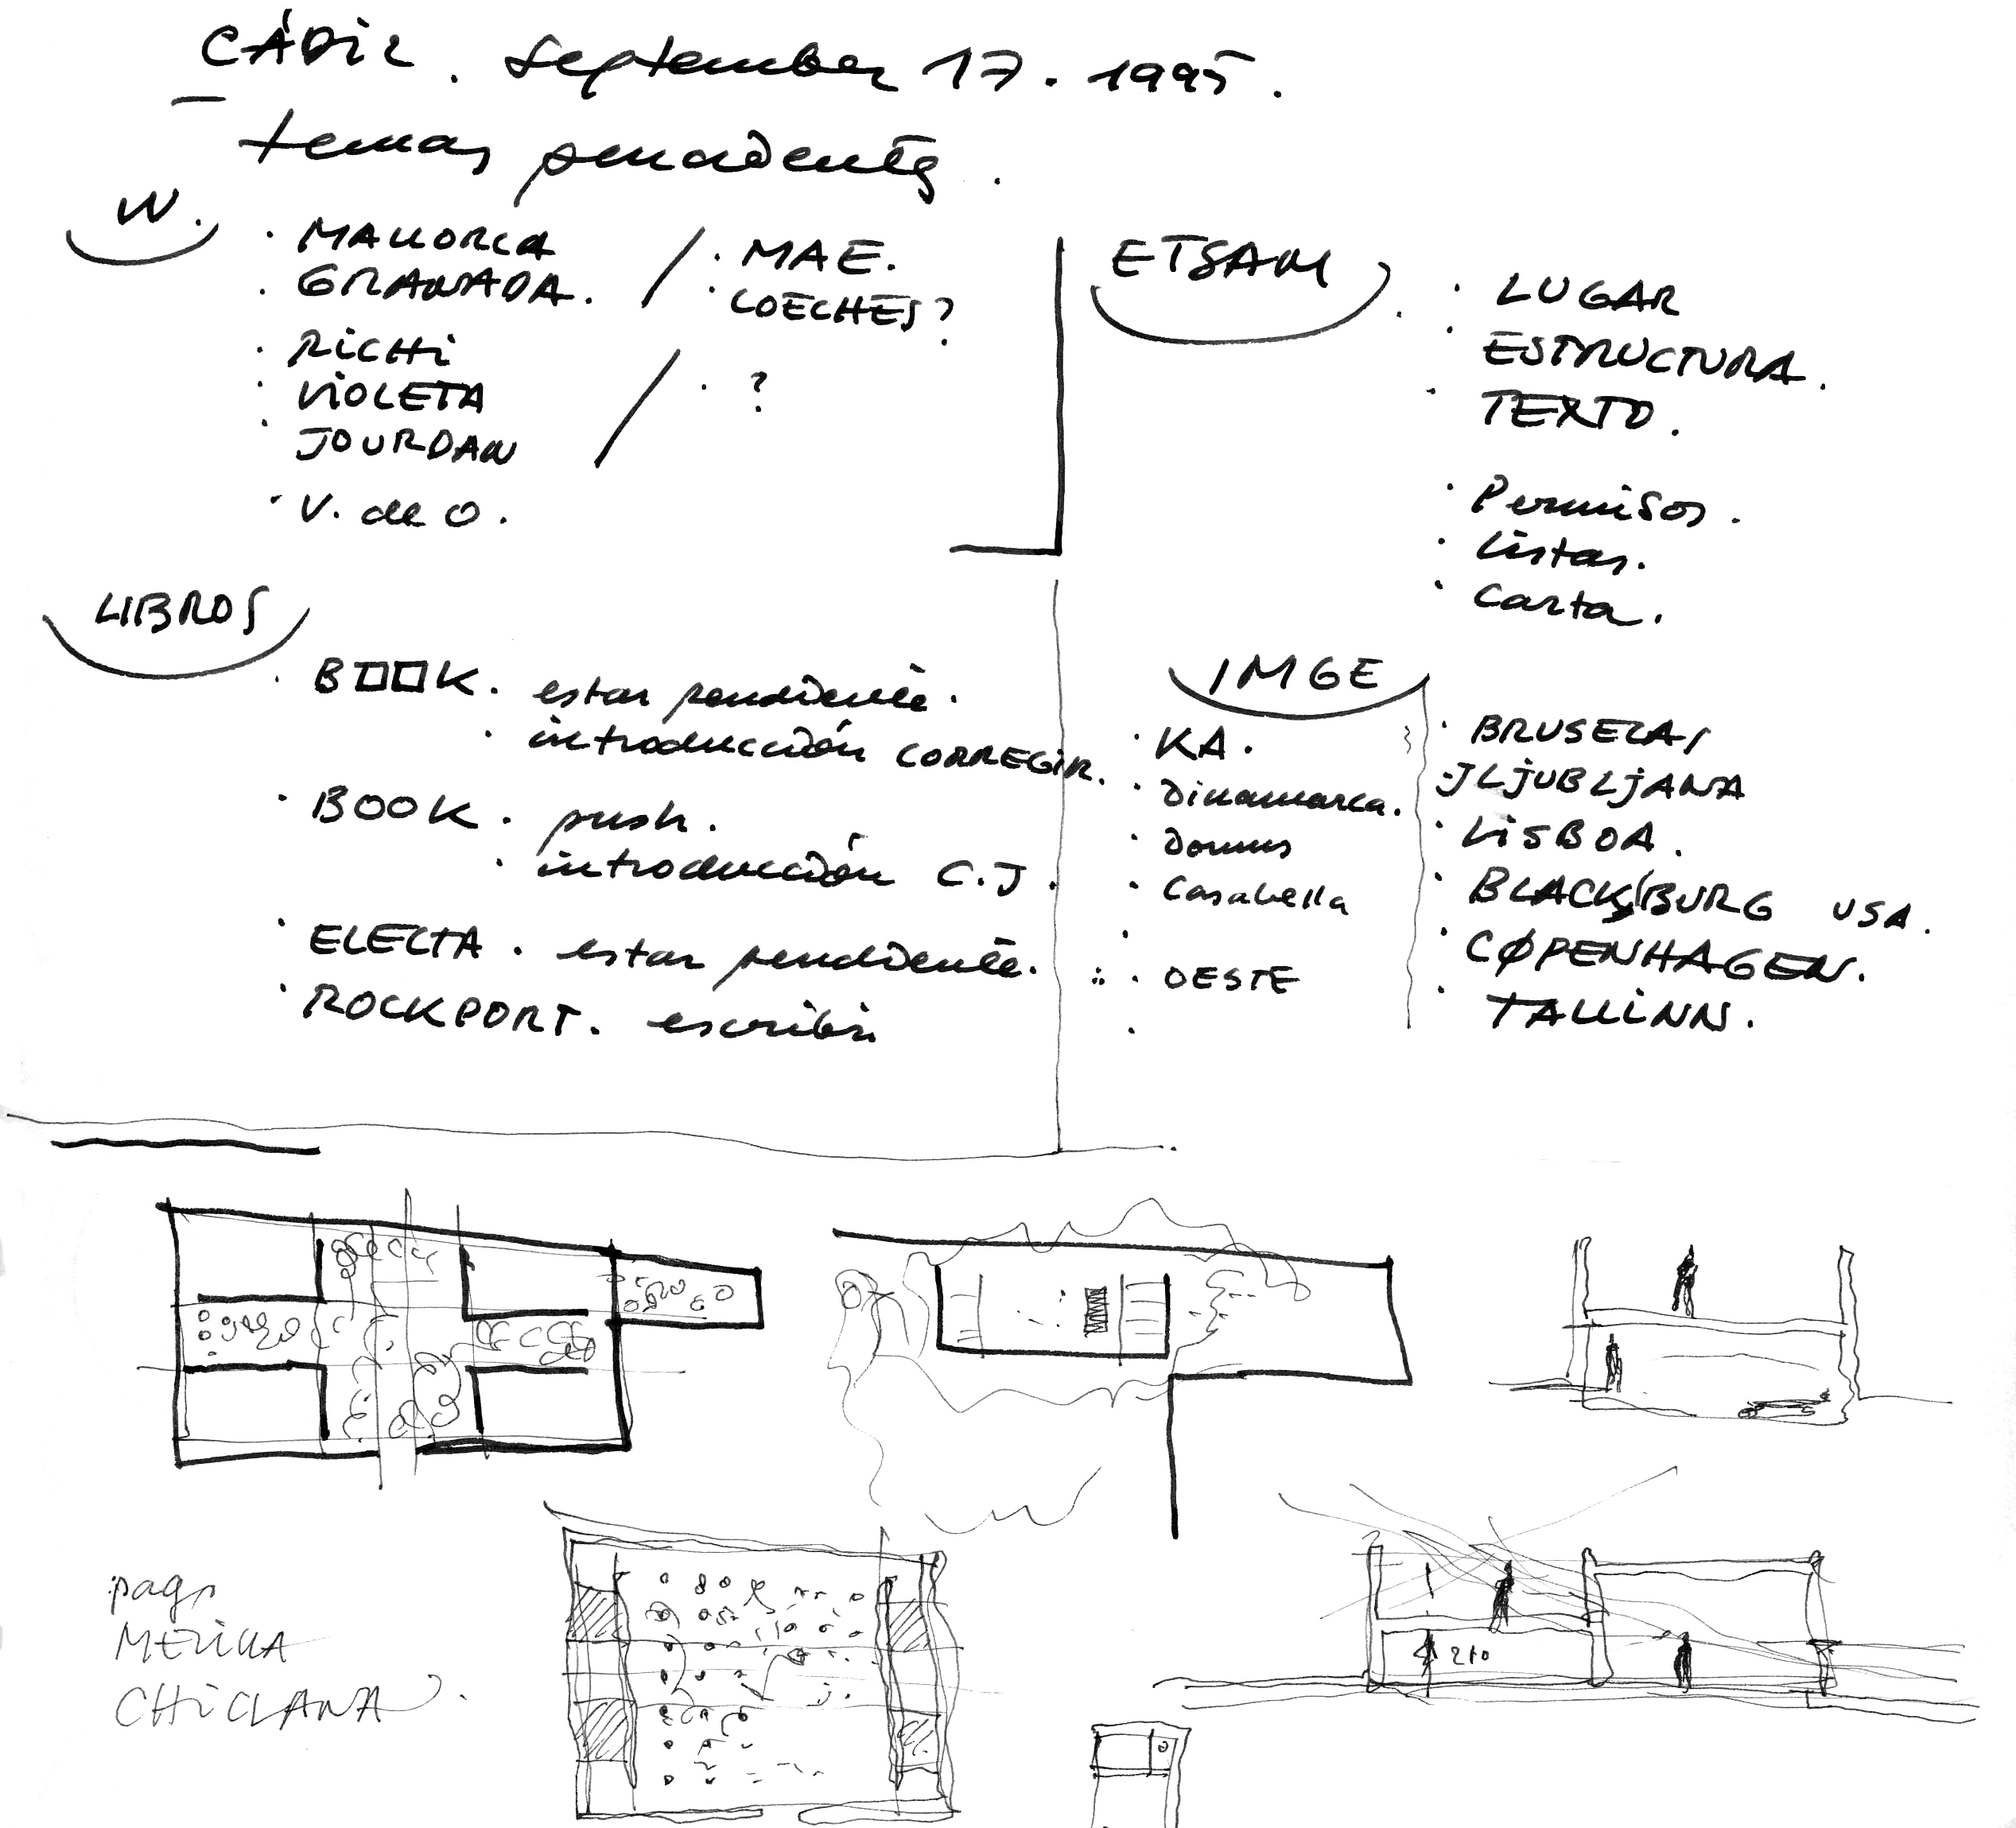 CÁDIZ. September 17. 1995.
temas pendientes.
W.
· MALLORCA
· GRANADA.
· RICHI
· VIOLETA
· JOURDAN
· V. de O.
/ · MAE.
· LOECHES?
/ · ?
ETSAM
· LUGAR
· ESTRUCTURA.
· TEXTO.
· Permisos.
· Listas.
· Carta.
LIBROS
· BOOK. estar pendiente.
· introducción CORREGIR.
· BOOK. push.
· introducción C.J.
· ELECTA. estar pendiente.
· ROCKPORT. escribir
IMGE
· KA.
· Dinamarca.
· Domus
· Casabella
· OESTE
· BRUSELAS
· LJUBLJANA
· LISBOA.
· BLACKSBURG USA.
· CØPENHAGEN.
· TALLINN.
210
CHICLANA.